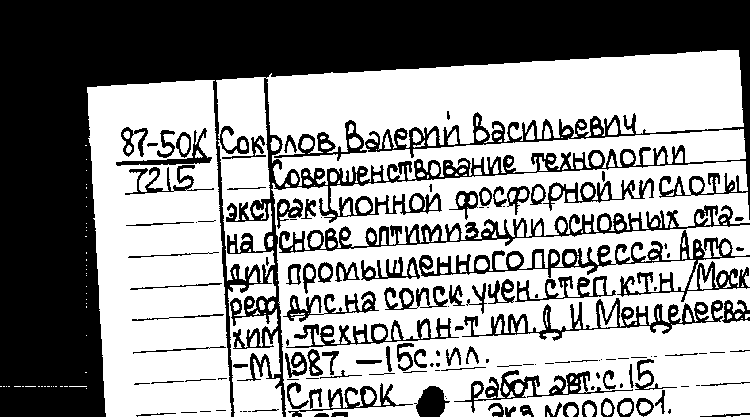 87-50К Соколов, Валерий Васильевич.
7215 Совершенствование технологии
экстракционной фосфорной кислоты
на основе оптимизации основных ста-
дий промышленного процесса: Авто-
реф дис. на соиск. учен. степ. к.т.н. / Моск
хим.-технол. ин-т им. Д.И. Менделеева.
-М, 1987. —15с.: ил.
Список работ авт.: с.15.
экз N000001.